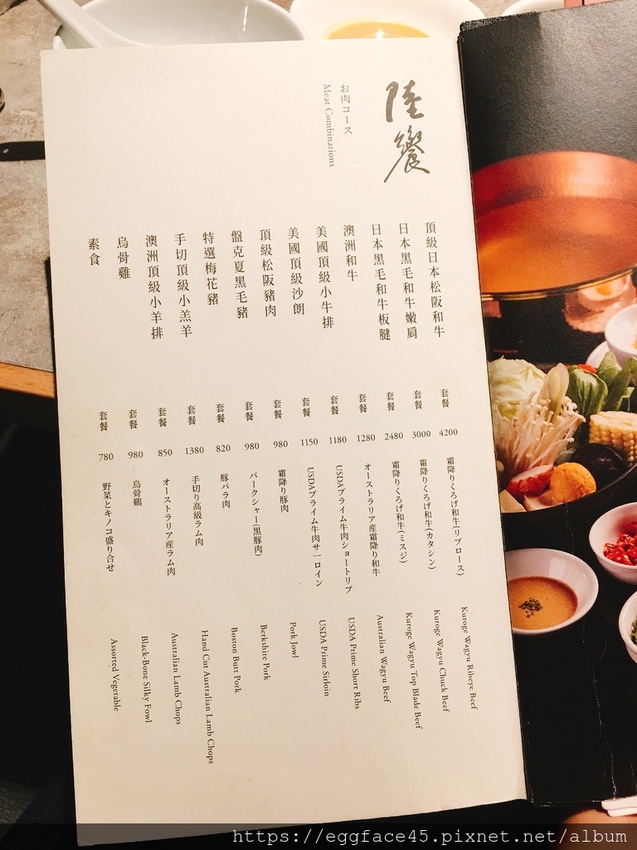 陸饗
お肉コース
Meat Combinations
頂級日本松阪和牛 套餐 4200 霜降りくろげ和牛(リブロース) Kuroge Wagyu Ribeye Beef
日本黑毛和牛嫩肩 套餐 3000 霜降りくろげ和牛(カタシン) Kuroge Wagyu Chuck Beef
日本黑毛和牛板腱 套餐 2480 霜降りくろげ和牛(ミスジ) Kuroge Wagyu Top Blade Beef
澳洲和牛 套餐 1280 オーストラリア産霜降り和牛 Australian Wagyu Beef
美國頂級小牛排 套餐 1180 USDAプライム牛肉ショートリブ USDA Prime Short Ribs
美國頂級沙朗 套餐 1150 USDAプライム牛肉サーロイン USDA Prime Sirloin
頂級松阪豬肉 套餐 980 霜降り豚肉 Pork Jowl
盤克夏黑毛豬 套餐 980 バークシャー(黒豚肉) Berkshire Pork
特選梅花豬 套餐 820 豚バラ肉 Boston Butt Pork
手切頂級小羔羊 套餐 1380 手切り高級ラム肉 Hand Cut Australian Lamb Chops
澳洲頂級小羊排 套餐 850 オーストラリア産ラム肉 Australian Lamb Chops
烏骨雞 套餐 980 烏骨鶏 Black-Bone Silky Fowl
素食 套餐 780 野菜とキノコ盛り合せ Assorted Vegetable
https://eggface45.pixnet.net/album